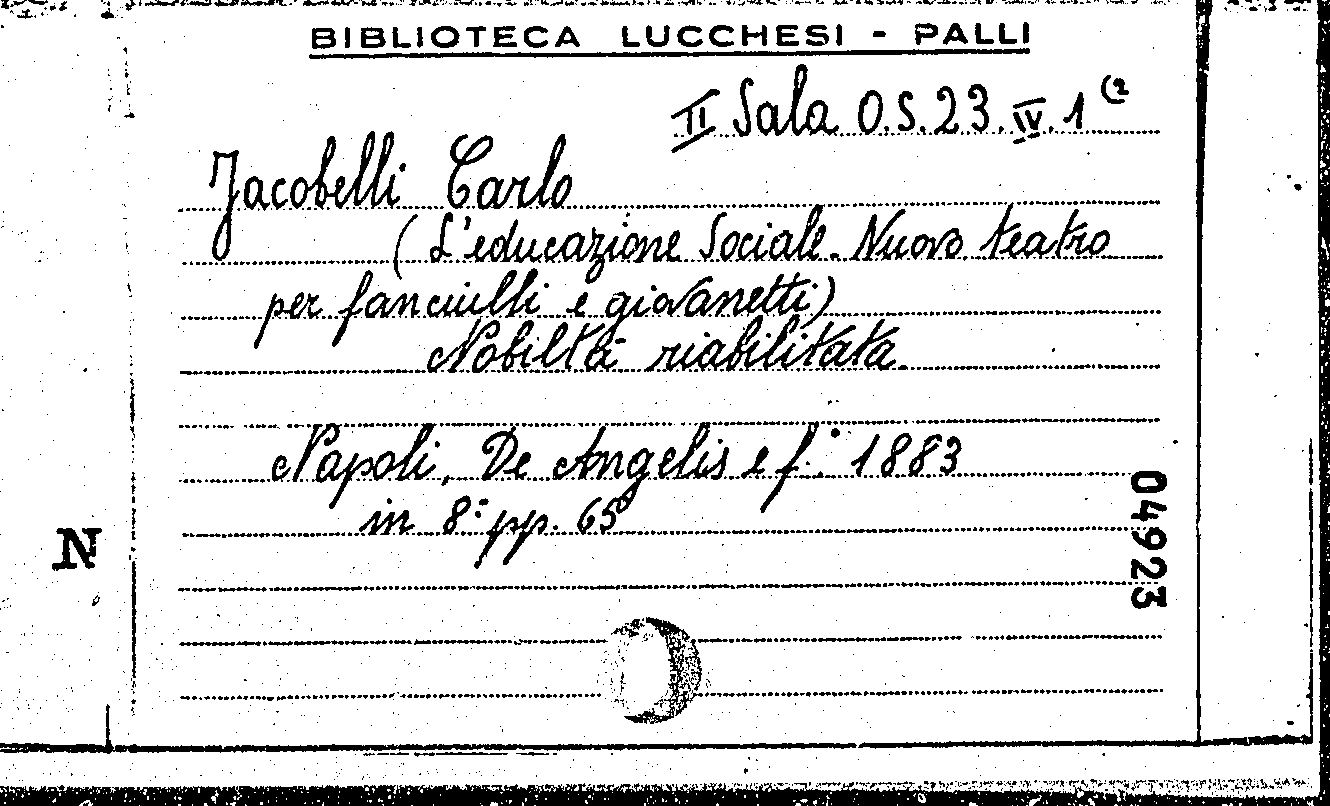 BIBLIOTECA LUCCHESI - PALLI
II Sala O.S.23.IV.1(2
Jacobelli Carlo
(L'educazione Sociale. Nuovo teatro
per fanciulli e giovanetti)
Nobiltà riabilitata.
Napoli, De Angelis e f.° 1883
in 8° pp. 65
N
04923